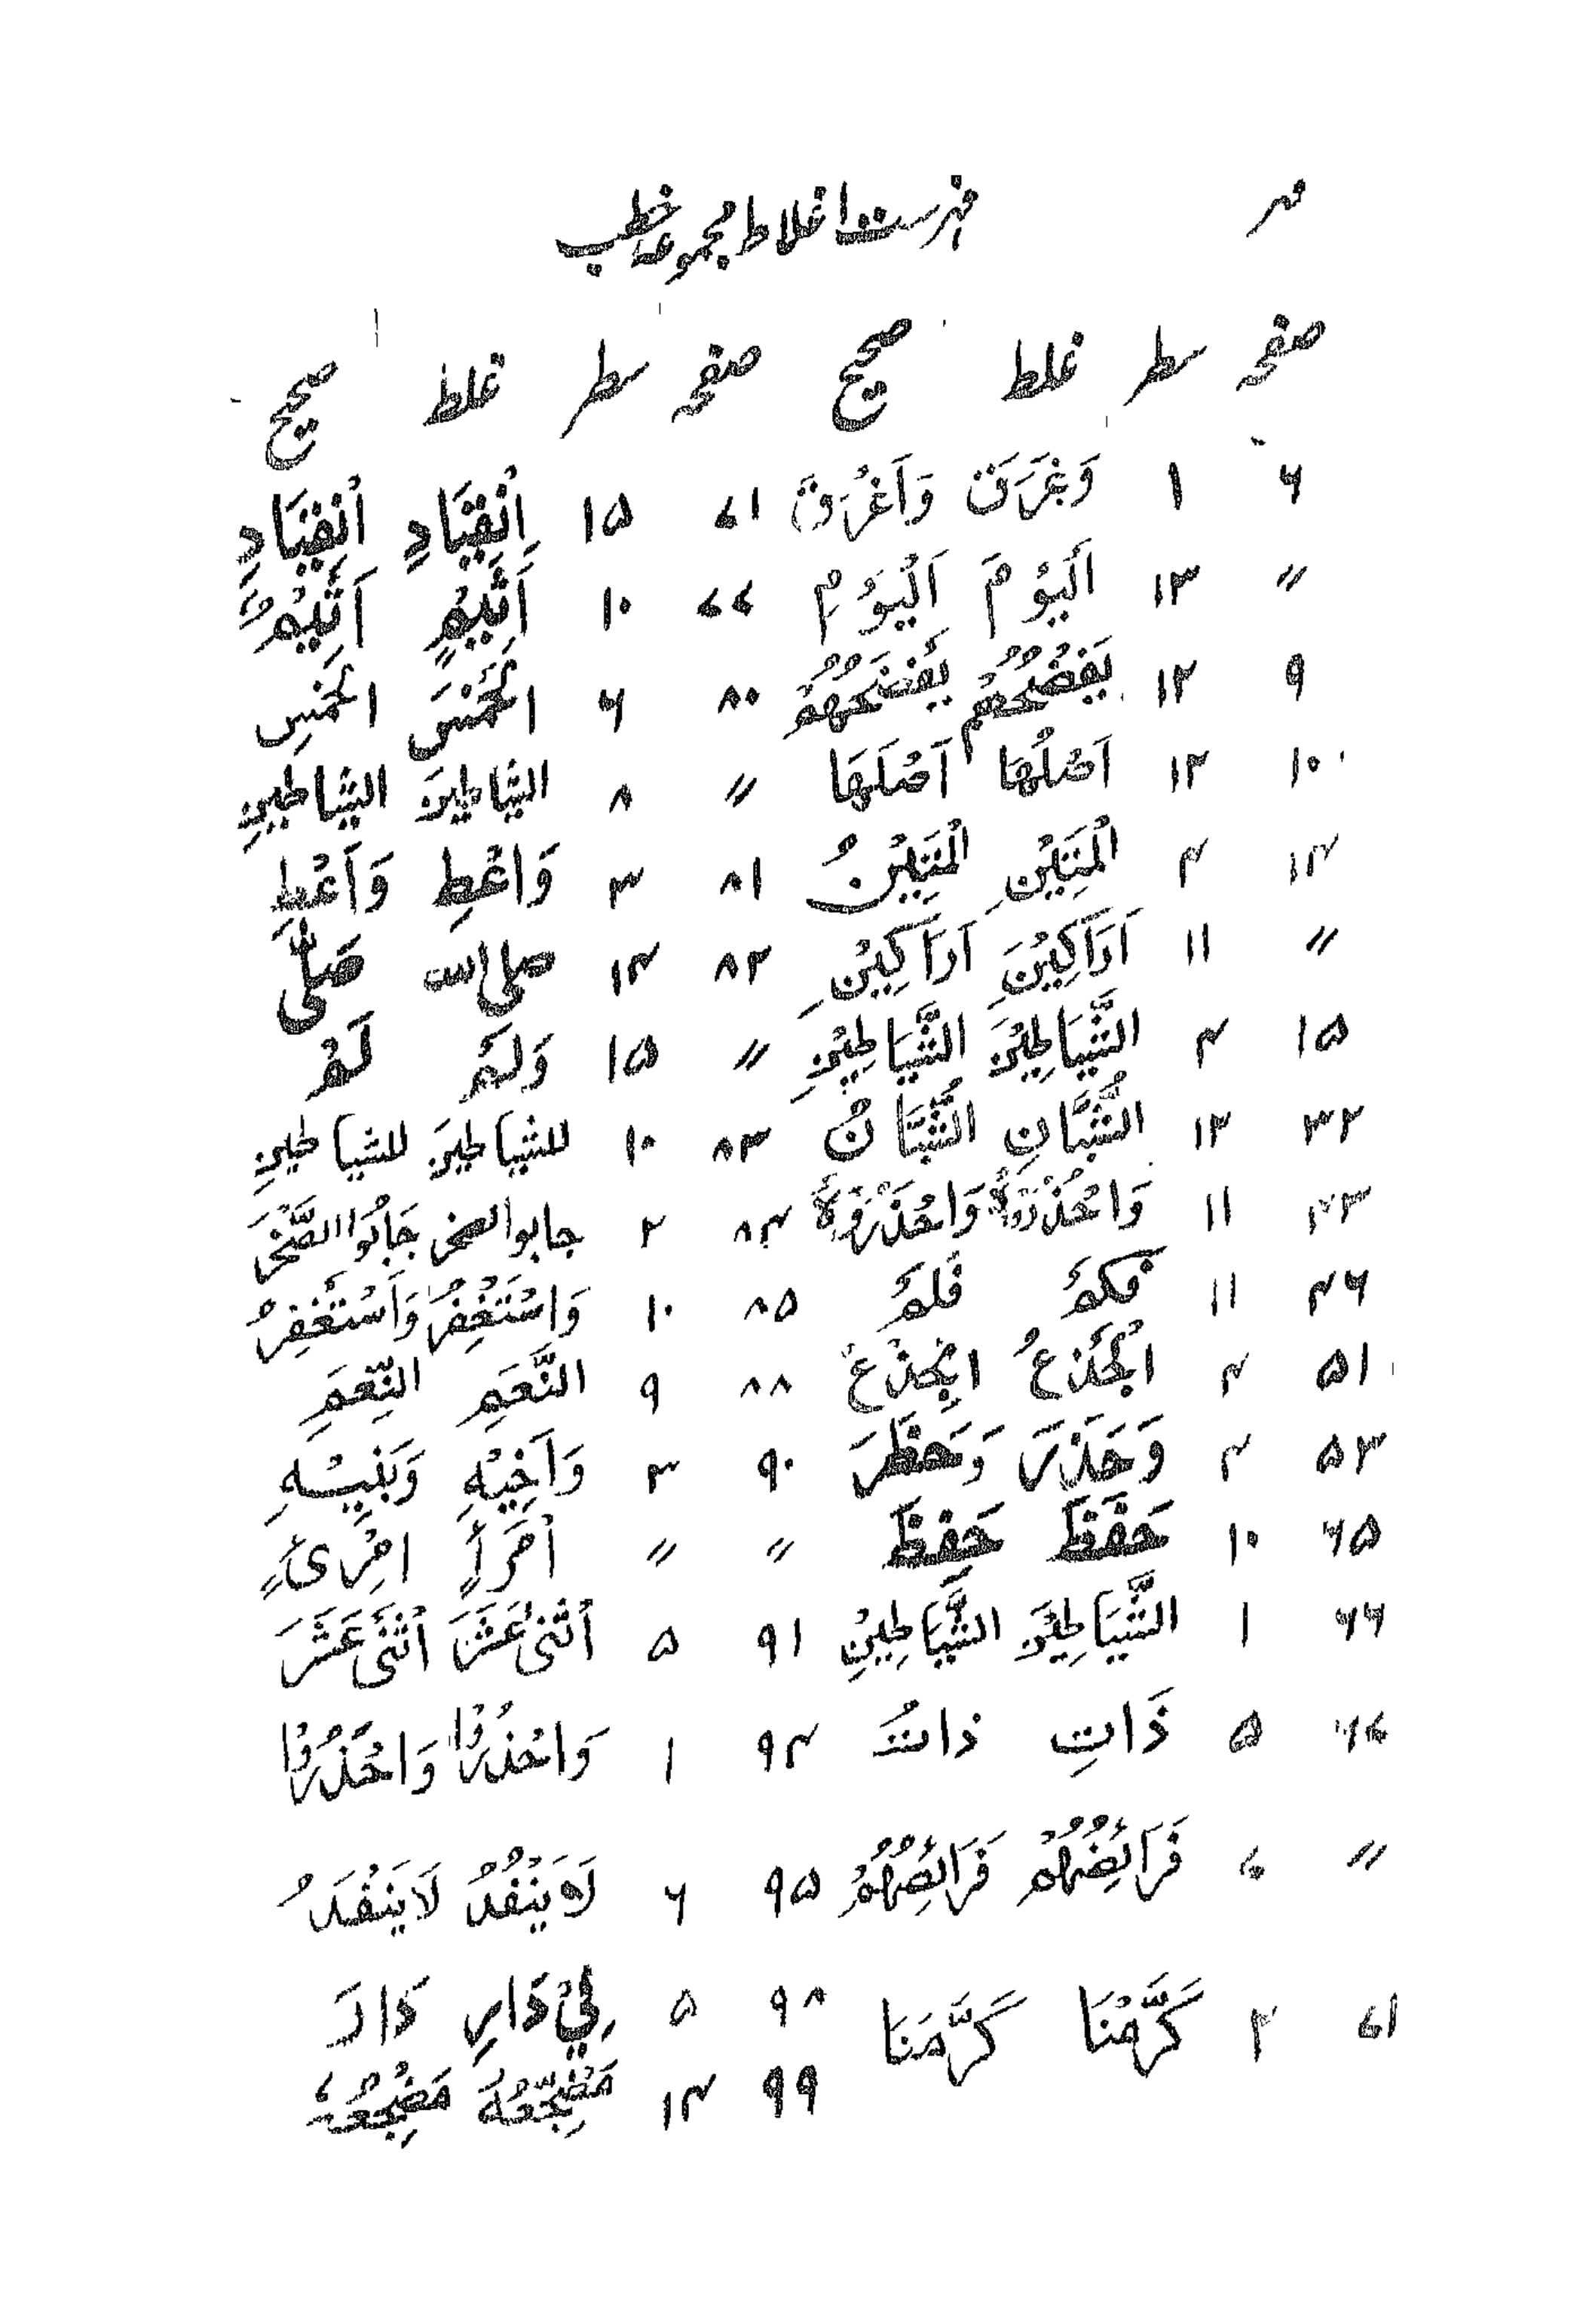 فہرست اغلاط مجموعہ خطب
صفحہ سطر غلط صحیح صفحہ سطر غلط صحیح
۶ ۱ وَغَرَقَ وَاَغْرَقَ ۷۱ ۱۵ اِنْقِيَادِ اْنْقِيَادِ
〃 ۱۳ اَلْيَوْمَ اَلْيَوْمِ ۷۷ ۱۰ اَثِيْمٍ اَثِيْمٌ
۹ ۱۲ يَفْضُحُهُمْ يَفْضَحُهُمْ ۸۰ ۶ الْخَمْسَ الْخَمْسِ
۱۰ ۱۲ اَصْلُهَا اَصْلَهَا 〃 ۸ الشیاطینَ الشیاطینِ
۱۴ ۴ الْمَتِيْنِ الْمَتِيْنُ ۸۱ ۳ وَاعْطِ وَاَعْطِ
〃 ۱۱ اَرَاكِيْنَ اَرَاكِيْنِ ۸۲ ۱۴ صلی اللہ صَلَّى
۱۵ ۴ الشَّيَاطِيْنَ الشَّيَاطِيْنِ 〃 ۱۵ وَلَمْ لَمْ
۳۲ ۱۲ الشُّبَّانِ الشُّبَّانُ ۸۳ ۱۰ للشیاطینَ للشیاطینِ
۳۳ ۱۱ وَاحْذُرُوْهُ وَاحْذَرُوْهُ ۸۴ ۲ جابوا الصخر جَابُوا الصَّخْرَ
۴۶ ۱۱ فَكَمْ فَلَمْ ۸۵ ۱۰ وَاسْتَغْفِرُ وَاَسْتَغْفِرُ
۵۱ ۴ الْجَذْعُ الْجِذْعُ ۸۸ ۹ النَّعَمِ النِّعَمِ
۵۳ ۴ وَحَذَرَ وَحَظَرَ ۹۰ ۳ وَاَخِيْهِ وَبَنِيْهِ
۶۵ ۱۰ حَفَظَ حَفِظَ 〃 〃 اْمَرأٍ امْرِئٍ
۶۶ ۱ الشَّيَاطِيْنَ الشَّيَاطِيْنِ ۹۱ ۵ اثْنٰى عَشَرَ اثْنَىْ عَشَرَ
۶۷ ۵ ذَاتِ ذاتُ ۹۴ ۱ وَاحْذُرُوْا وَاحْذَرُوْا
〃 ۷ فَرَائِضُهُمْ فَرَائِصُهُمْ ۹۵ ۶ لَا يَنْفُدُ لَا يَنْفَدُ
۷۱ ۲ كَرَّمْنَا كَرَّمَنَا ۹۸ ۵ لِيْ دَارِ دَارَ
۹۹ ۱۴ مَضْجِعُهٗ مَضْجَعُهٗ